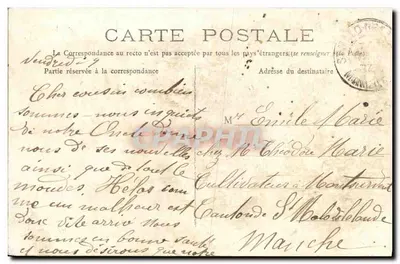 CARTE POSTALE
La Correspondance au recto n'est pas acceptée par tous les pays étrangers (se renseigner à la Poste)
Partie réservée à la correspondance
Adresse du destinataire
Vendredi 9
Cher cousin combien
sommes nous inquiets
de notre Oncle Donne
nous de ses nouvelles
ainsi que de tout le
monde. Hélas com
me un malheur est
donc vite arrivé nous
sommes en bonne santé
et nous désirons que notre
Mr Emile Marie
chez Mr Théodore Marie
Cultivateurs à
Canton de St Malo de la Lande
Manche